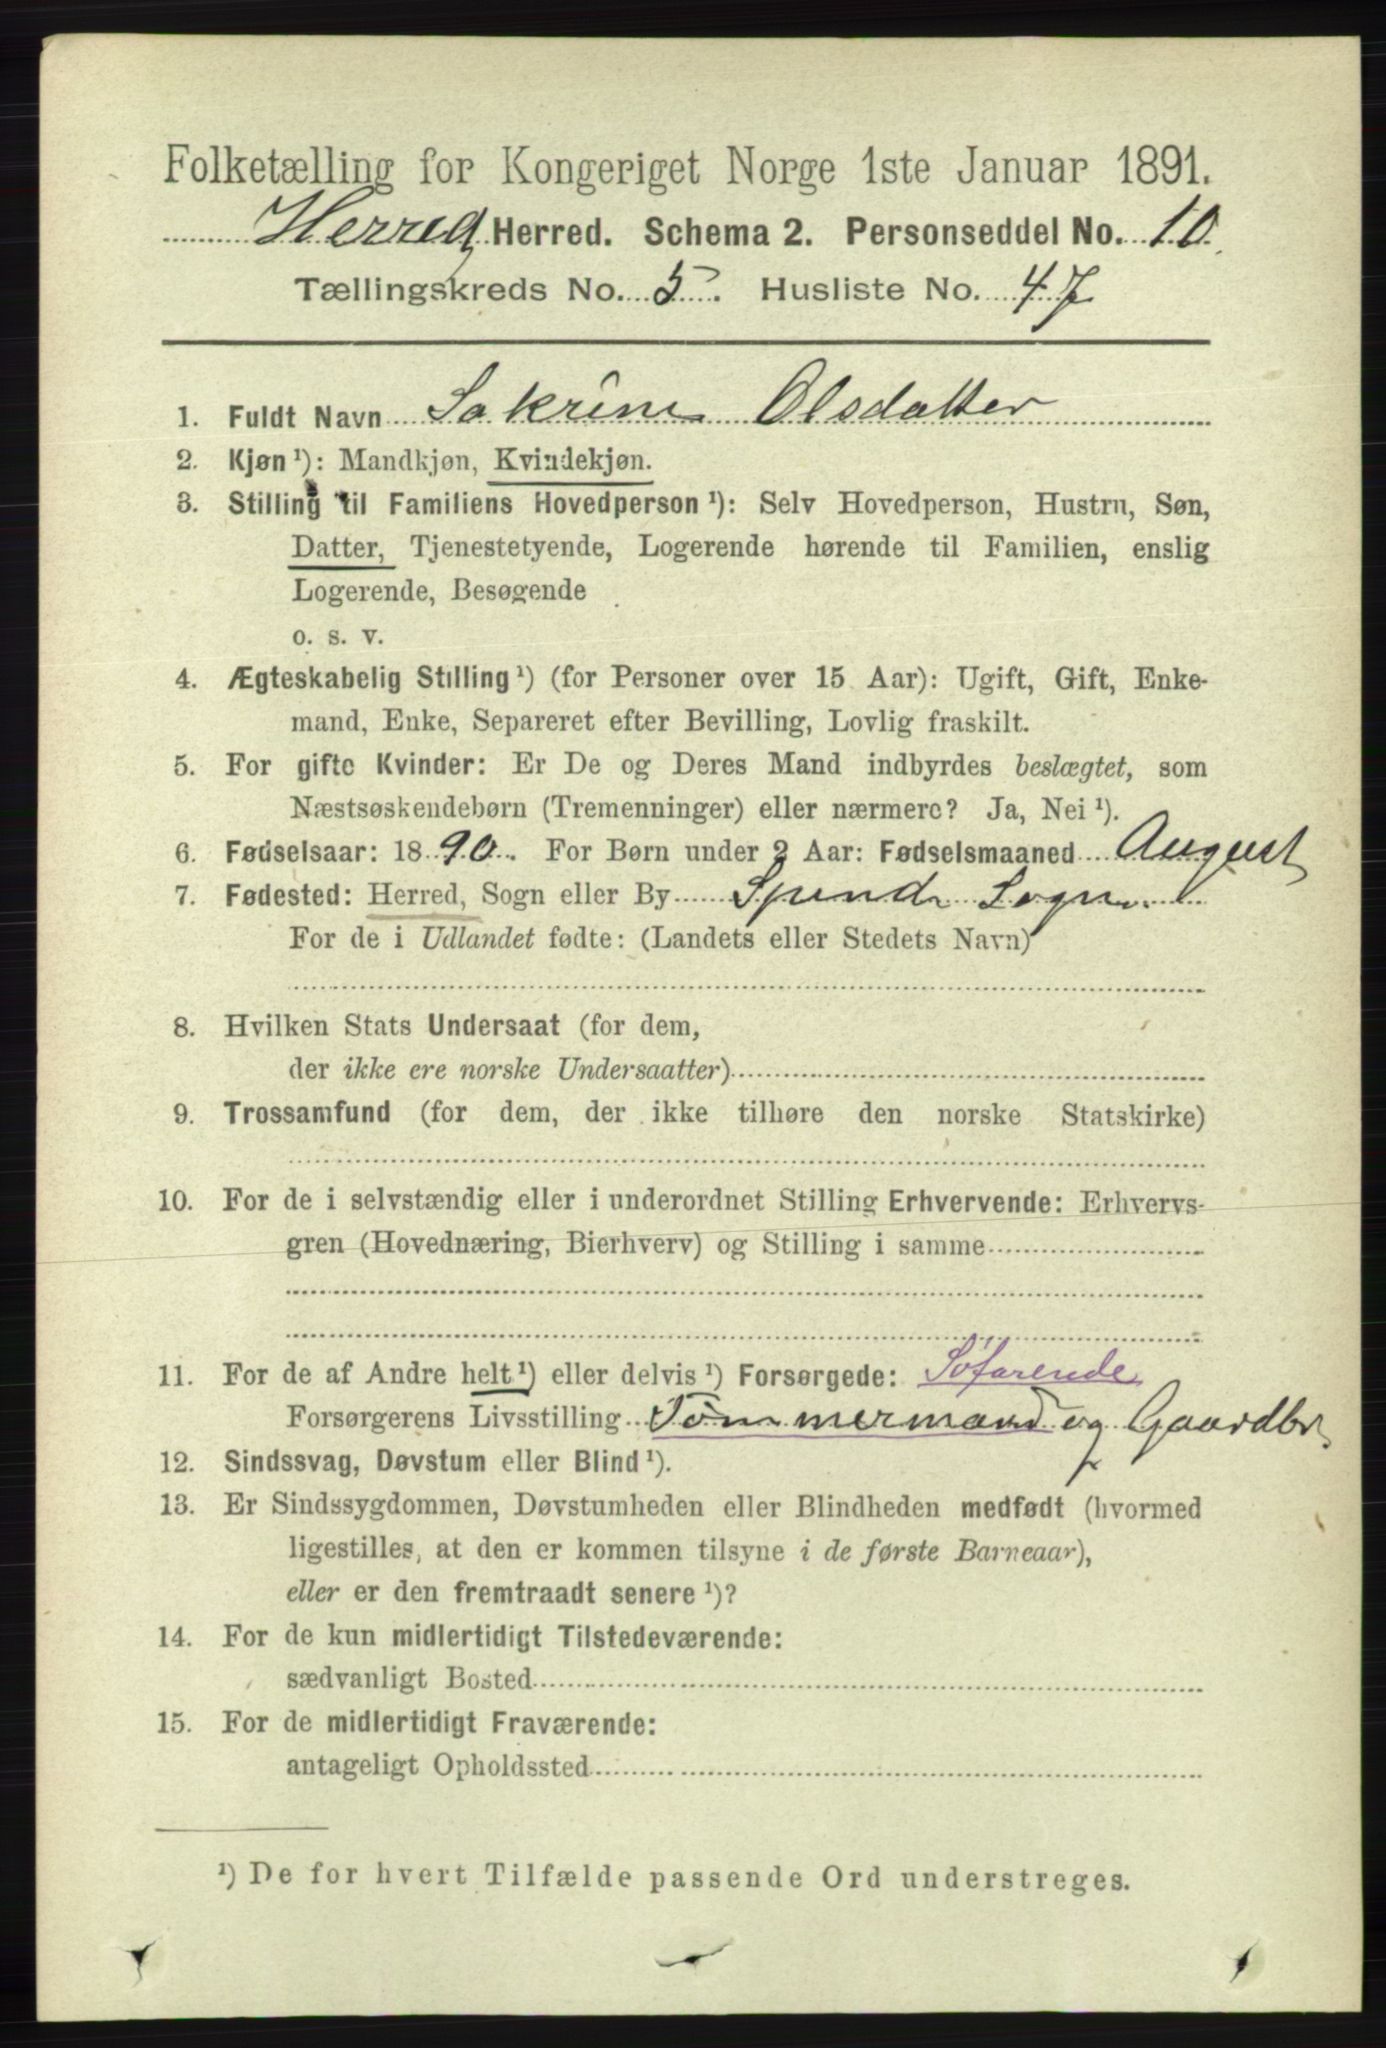 Folketælling for Kongeriget Norge 1ste Januar 1891.
Herred Herred. Schema 2. Personseddel No. 10.
Tællingskreds No. 5. Husliste No. 47
1. Fuldt Navn Sakrine Olsdatter
2. Kjøn ¹): Mandkjøn, Kvindekjøn.
3. Stilling til Familiens Hovedperson ¹): Selv Hovedperson, Hustru, Søn,
Datter, Tjenestetyende, Logerende hørende til Familien, enslig
Logerende, Besøgende
o. s. v.
4. Ægteskabelig Stilling ¹) (for Personer over 15 Aar): Ugift, Gift, Enke-
mand, Enke, Separeret efter Bevilling, Lovlig fraskilt.
5. For gifte Kvinder: Er De og Deres Mand indbyrdes beslægtet, som
Næstsøskendebørn (Tremenninger) eller nærmere? Ja, Nei ¹).
6. Fødselsaar: 1890. For Børn under 2 Aar: Fødselsmaaned August
7. Fødested: Herred, Sogn eller By Spind Sogn.
For de i Udlandet fødte: (Landets eller Stedets Navn)
8. Hvilken Stats Undersaat (for dem,
der ikke ere norske Undersaatter)
9. Trossamfund (for dem, der ikke tilhøre den norske Statskirke)
10. For de i selvstændig eller i underordnet Stilling Erhvervende: Erhvervs-
gren (Hovednæring, Bierhverv) og Stilling i samme
11. For de af Andre helt ¹) eller delvis ¹) Forsørgede: Søfarende
Forsørgerens Livsstilling Tømmermand og Gaardbr
12. Sindssvag, Døvstum eller Blind ¹).
13. Er Sindssygdommen, Døvstumheden eller Blindheden medfødt (hvormed
ligestilles, at den er kommen tilsyne i de første Barneaar),
eller er den fremtraadt senere ¹)?
14. For de kun midlertidigt Tilstedeværende:
sædvanligt Bosted
15. For de midlertidigt Fraværende:
antageligt Opholdssted
¹) De for hvert Tilfælde passende Ord understreges.